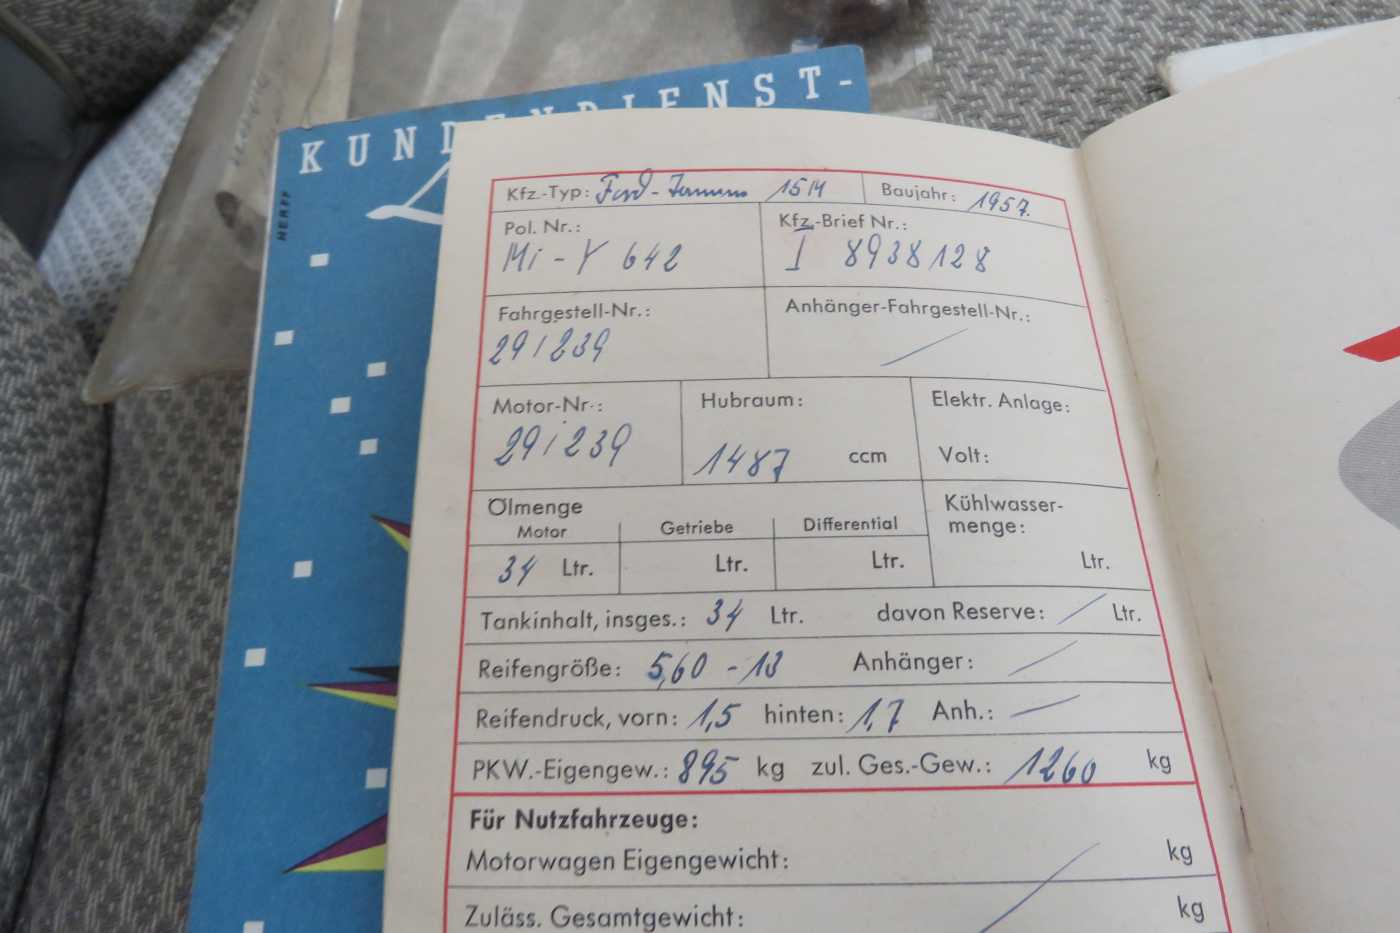 KUNDENDIENST-
HERFF
Kfz.-Typ: Ford-Taunus 15M Baujahr: 1957.
Pol. Nr.: Kfz.-Brief Nr.:
Mi-Y 642 I 8938128
Fahrgestell-Nr.: Anhänger-Fahrgestell-Nr.:
291239
Motor-Nr.: Hubraum: Elektr. Anlage:
291239 1487 ccm Volt:
Ölmenge Kühlwasser-
Motor Getriebe Differential menge:
34 Ltr. Ltr. Ltr. Ltr.
Tankinhalt, insges.: 34 Ltr. davon Reserve: Ltr.
Reifengröße: 5,60-13 Anhänger:
Reifendruck, vorn: 1,5 hinten: 1,7 Anh.:
PKW.-Eigengew.: 895 kg zul. Ges.-Gew.: 1260 kg
Für Nutzfahrzeuge:
Motorwagen Eigengewicht: kg
Zuläss. Gesamtgewicht: kg